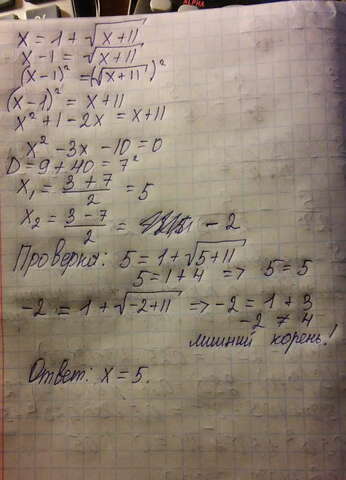 x = 1 + √(x+11)
x - 1 = √(x+11)
(x-1)² = (√(x+11))²
(x-1)² = x+11
x² + 1 - 2x = x+11
x² - 3x - 10 = 0
D = 9 + 40 = 7²
x₁ = (3+7)/2 = 5
x₂ = (3-7)/2 = - 2
Проверка: 5 = 1 + √(5+11)
5 = 1 + 4 => 5 = 5
-2 = 1 + √(-2+11) => -2 = 1 + 3
-2 ≠ 4
лишний корень!
Ответ: x = 5.